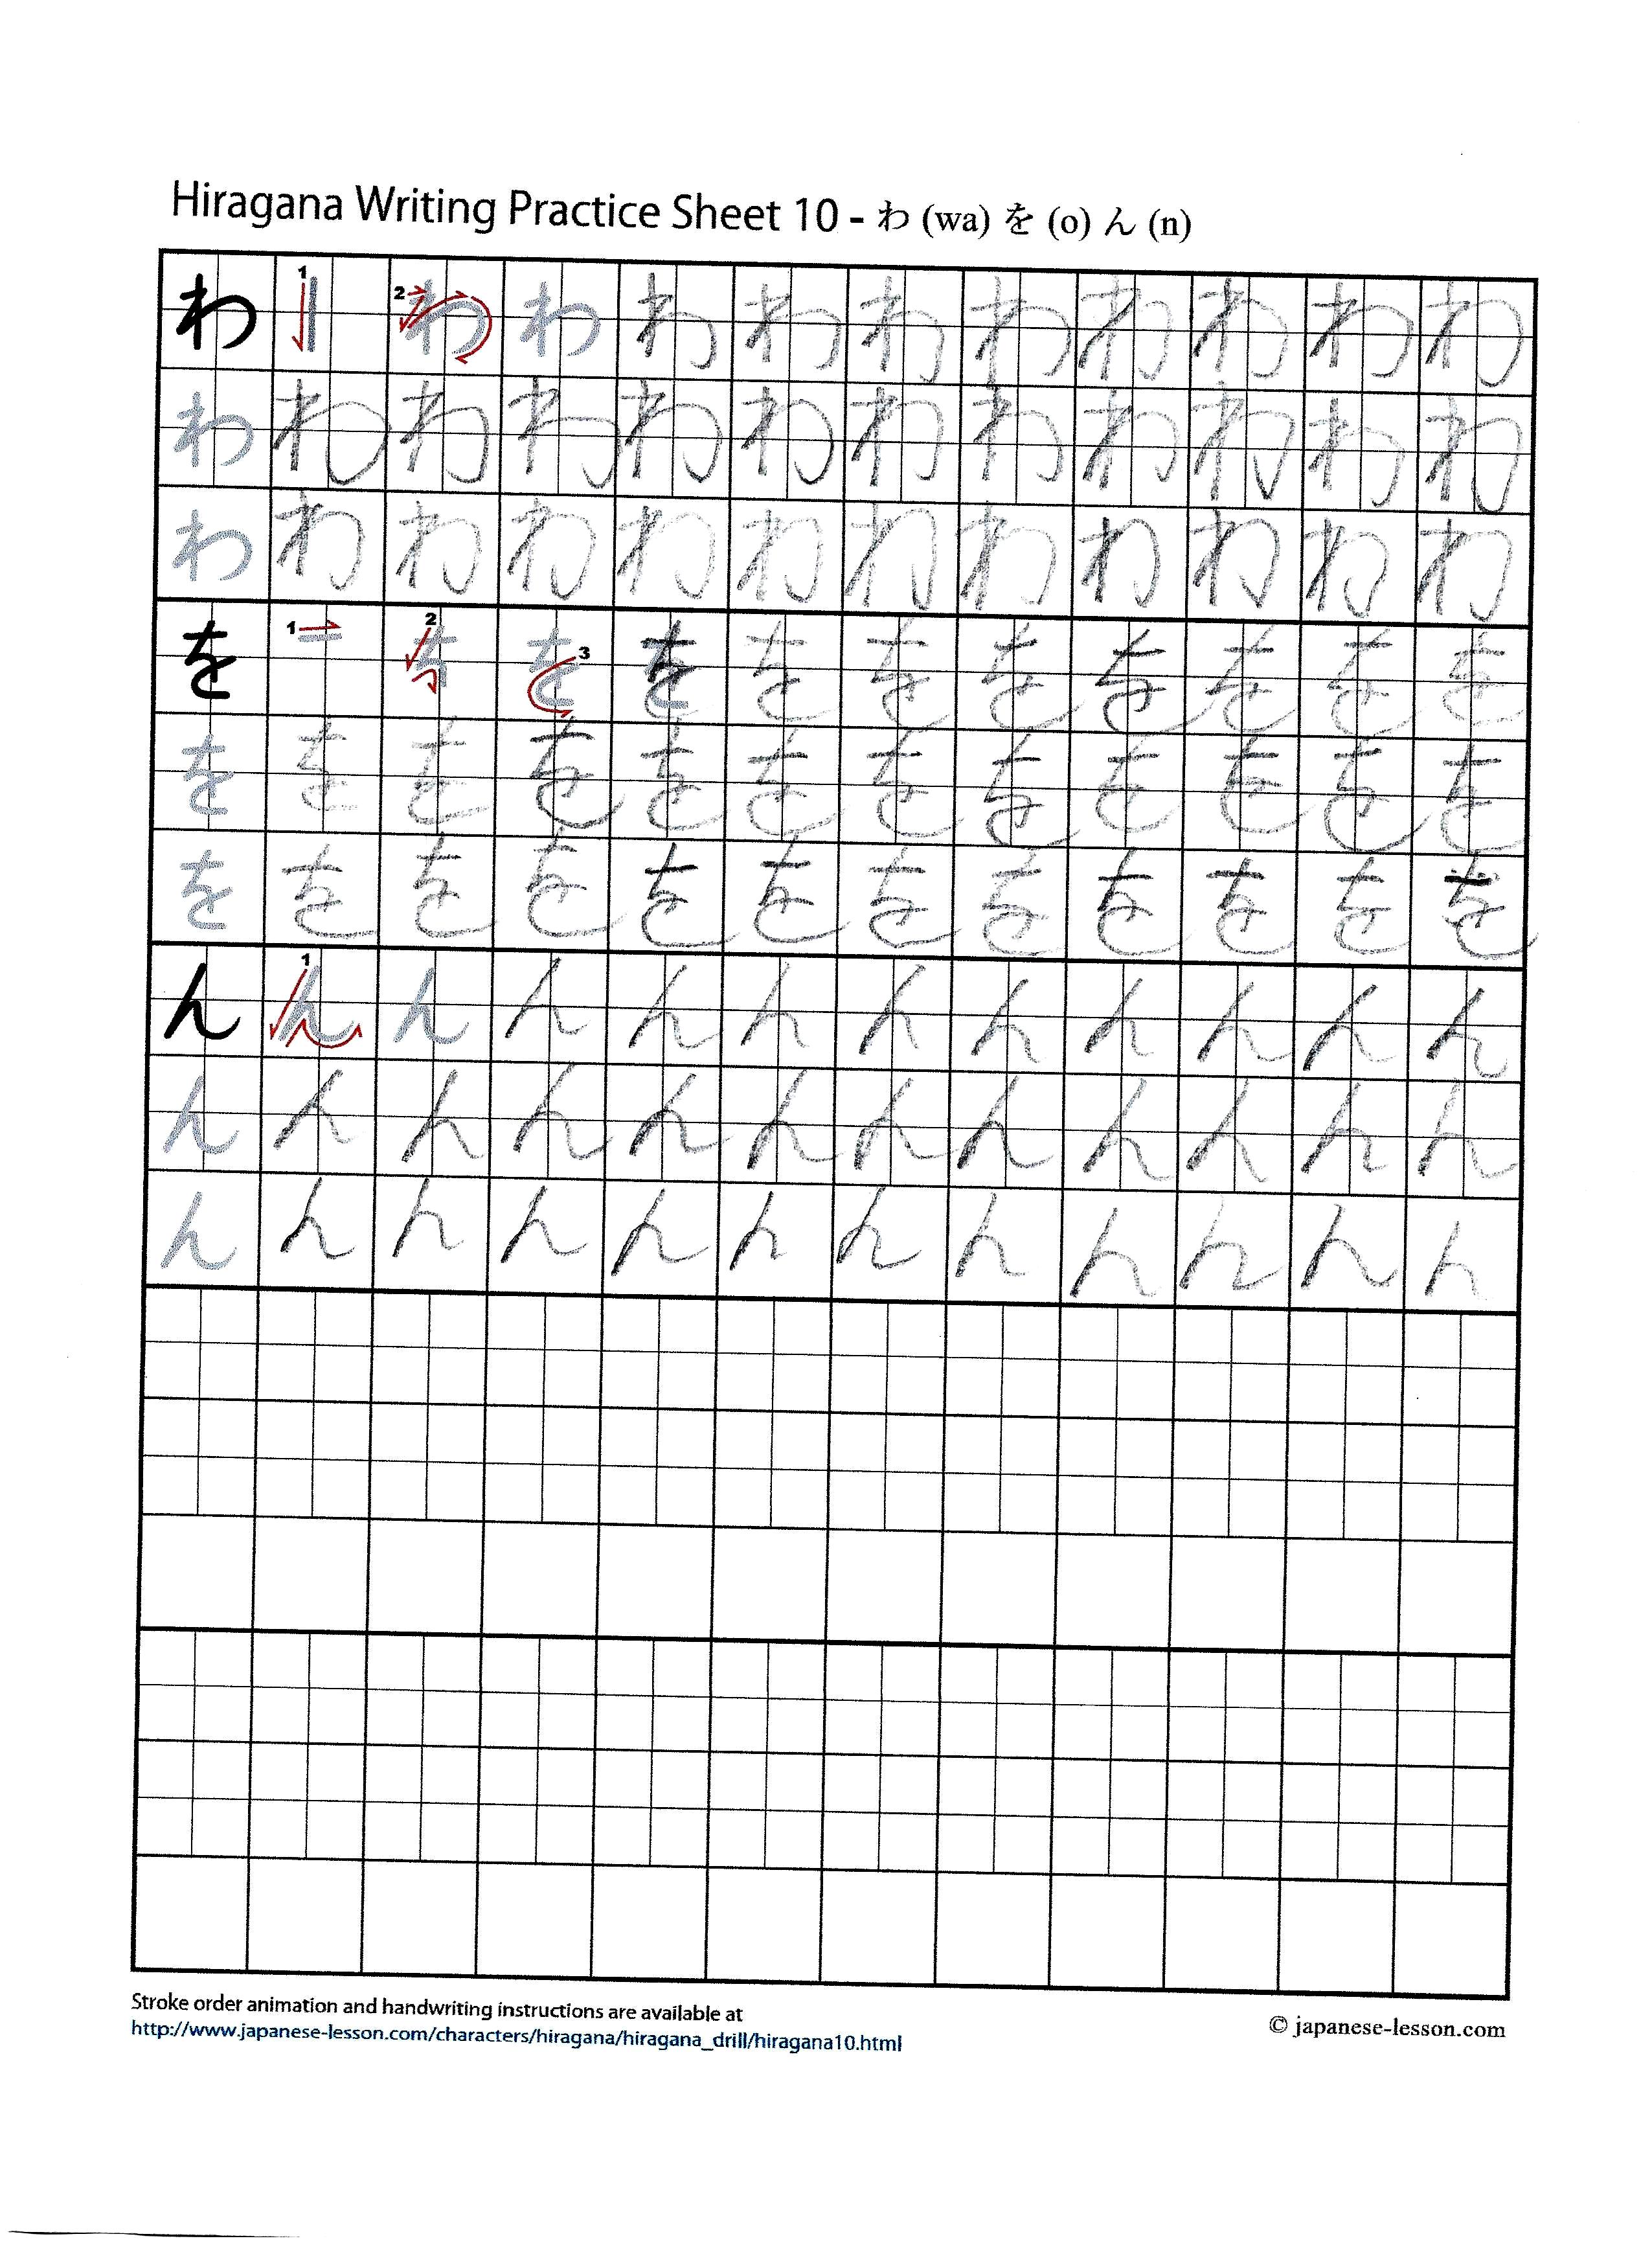 Hiragana Writing Practice Sheet 10 - わ (wa) を (o) ん (n)
わ 1 2 わ わ わ わ わ わ わ わ わ わ
わ わ わ わ わ わ わ わ わ わ わ わ
わ わ わ わ わ わ わ わ わ わ わ わ
を 1 2 を 3 を を を を を を を を
を を を を を を を を を を を を
を を を を を を を を を を を を
ん 1 ん ん ん ん ん ん ん ん ん ん ん ん
ん ん ん ん ん ん ん ん ん ん ん ん
ん ん ん ん ん ん ん ん ん ん ん ん
Stroke order animation and handwriting instructions are available at
http://www.japanese-lesson.com/characters/hiragana/hiragana_drill/hiragana10.html
© japanese-lesson.com